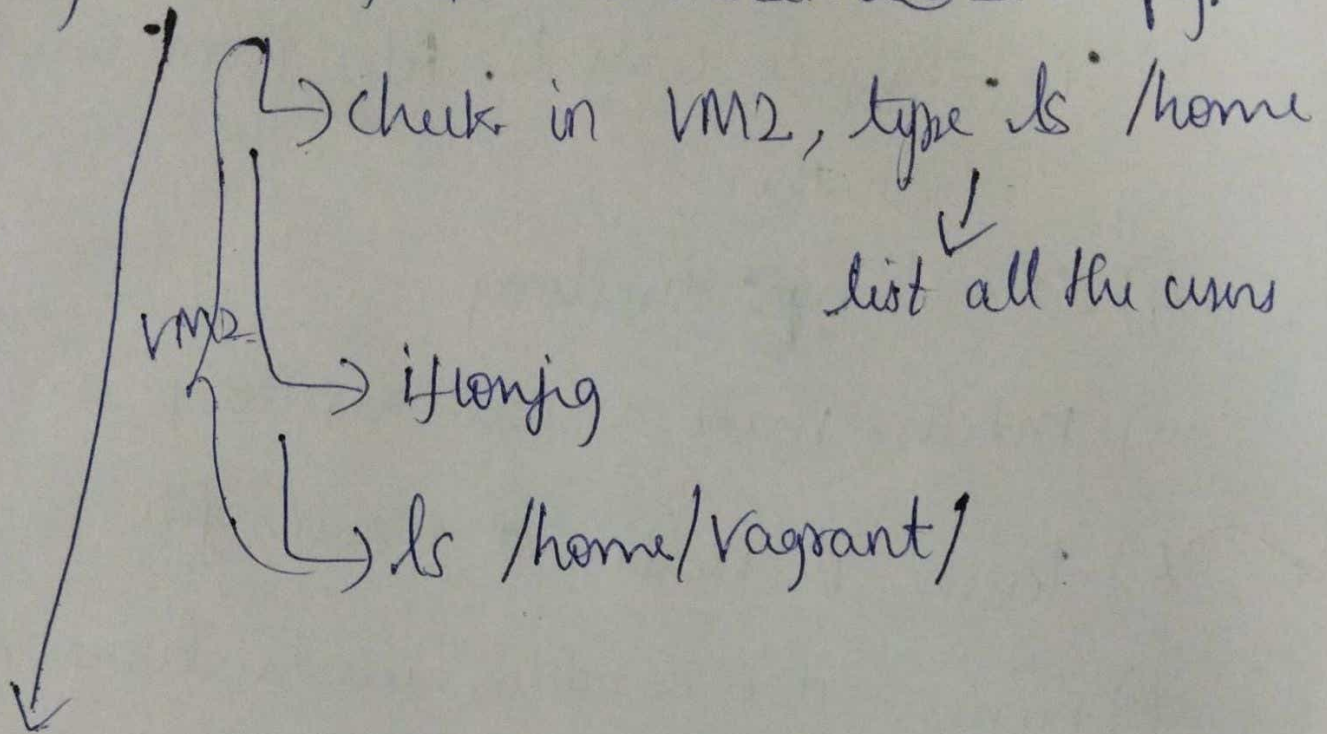 → check in VM2, type ls /home
↓
list all the users
VM2
→ ifconfig
→ ls /home/vagrant/